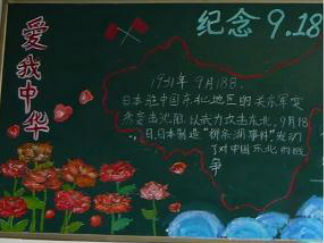 纪念9.18
爱我中华
1931年9月18日,
日本驻中国东北地区的关东军突
然袭击沈阳,以武力攻击东北。9月18
日,日本制造"柳条湖事件"发动
了对中国东北的战
争